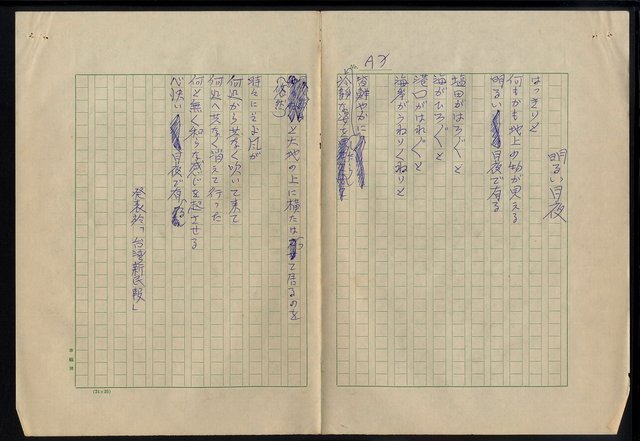 明るい白夜
はっきりと
何もかも地上の物が見える
明るい白夜で有る
塩田がはろ〲と
海がひろ〲と
港口がはれ〲と
海岸がうねりくねりと
皆鮮やかに
冷静な姿を
悠然と大地の上に横たはって居るのを
時々にそよ風が
何処から共なく吹いて来て
何処へ共なく消えて行った
何と無く知らぬ感じを起させる
心快い白夜で有る
発表於「台湾新民報」